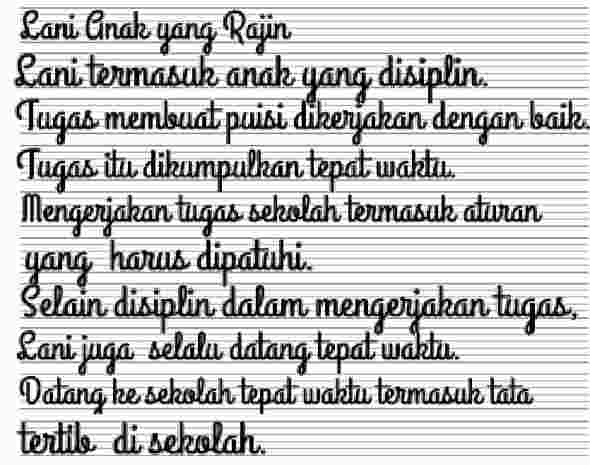 Lani Anak yang Rajin
Lani termasuk anak yang disiplin.
Tugas membuat puisi dikerjakan dengan baik.
Tugas itu dikumpulkan tepat waktu.
Mengerjakan tugas sekolah termasuk aturan
yang harus dipatuhi.
Selain disiplin dalam mengerjakan tugas,
Lani juga selalu datang tepat waktu.
Datang ke sekolah tepat waktu termasuk tata
tertib di sekolah.